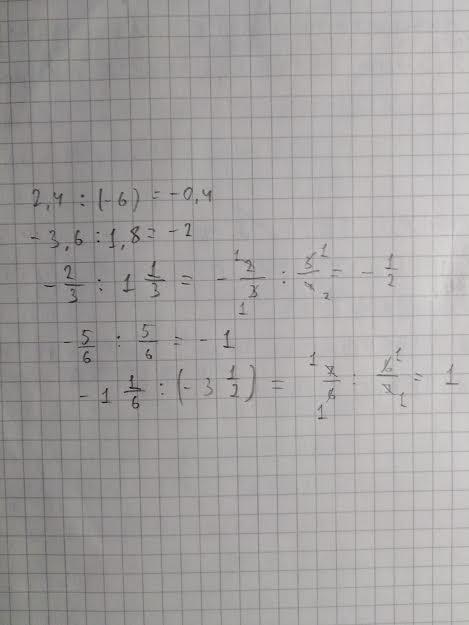 2,4 : (-6) = -0,4
-3,6 : 1,8 = -2
-2/3 : 1 1/3 = - 2/3 : 3/4 = - 1/2
-5/6 : 5/6 = -1
-1 1/6 : (-3 1/2) = 7/6 : 6/7 = 1